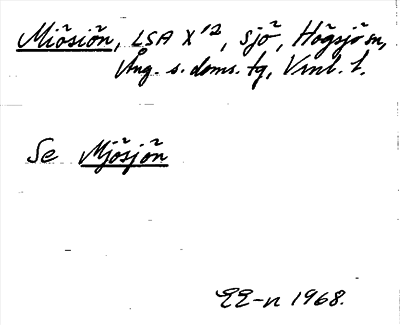 Miösiön, LSA X'2, sjö, Högsjö sn,
Ång. s. doms. tg, Vnl. l.
Se Mjösjön
EE-n 1968.